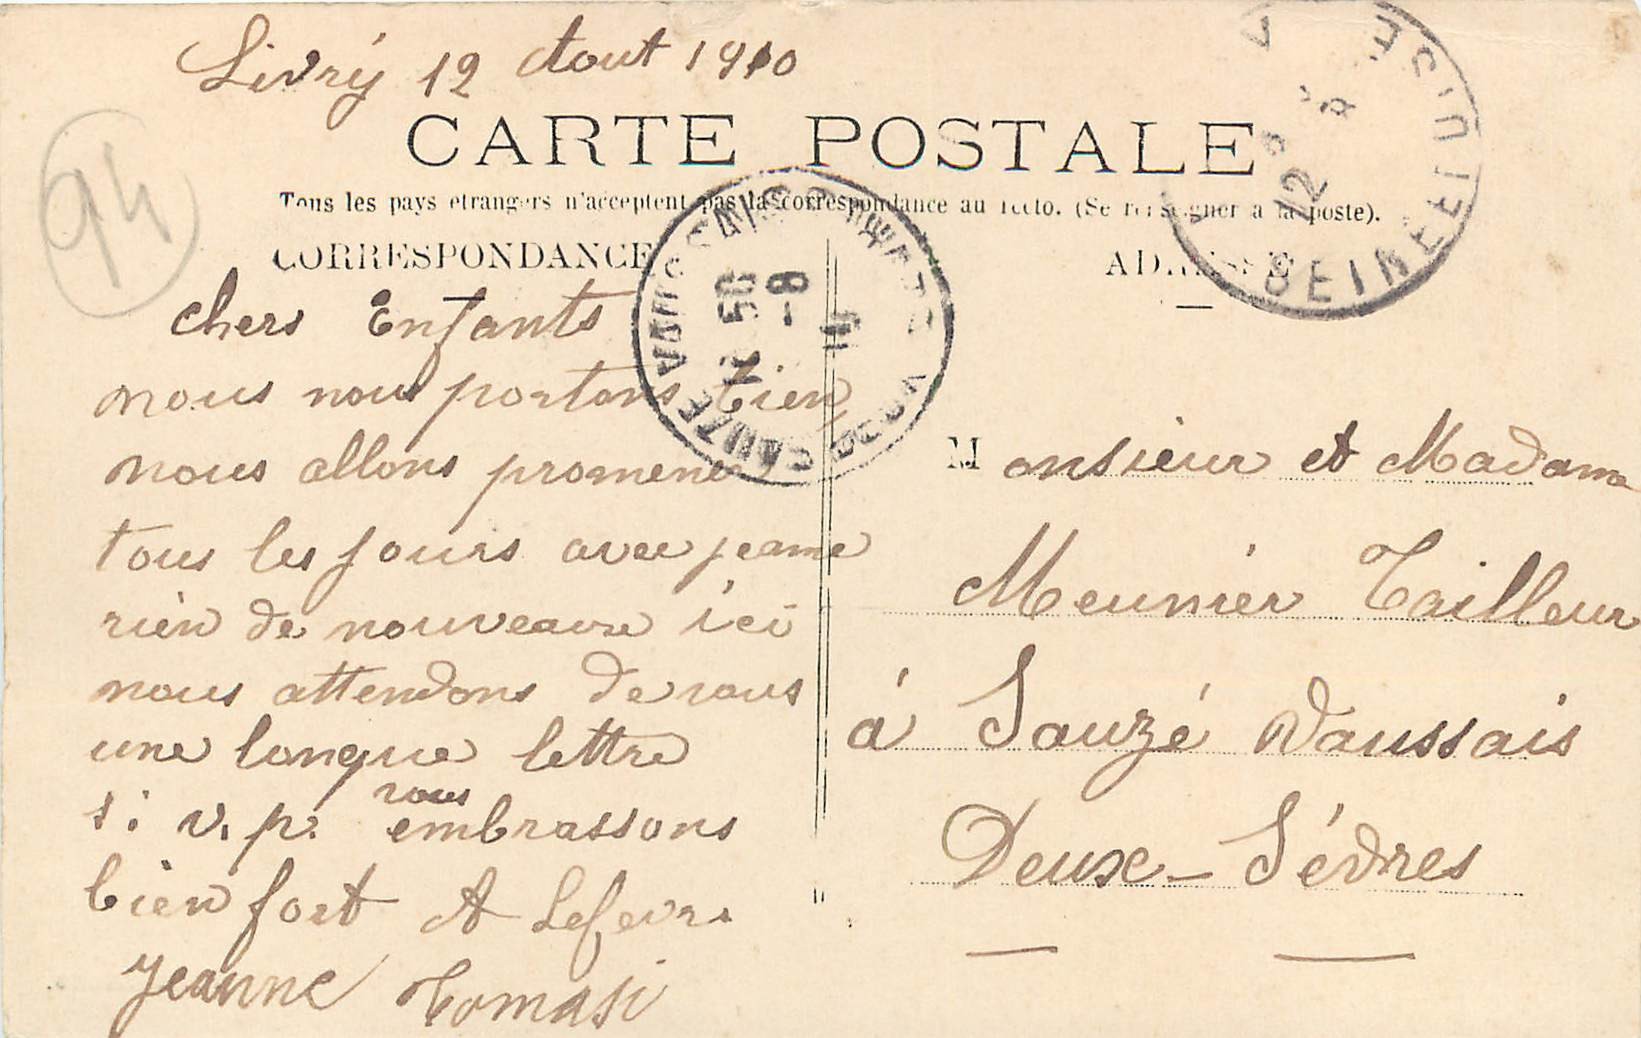 Livry 12 Aout 1910
94
CARTE POSTALE
Tous les pays etrangers n'acceptent pas la correspondance au recto. (Se renseigner a la poste).
CORRESPONDANCE
ADRESSE
chers Enfants
nous nous portons bien
nous allons promener
tous les jours avec jeanne
rien de nouveaux ici
nous attendons de vous
une longue lettre
s: v. p. vous embrassons
bien fort A Lefevre
Jeanne Tomasi
Monsieur et Madame
Meunier Tailleur
à Sauzé Vaussais
Deux-Sévres
SAUZE VAUSSAIS
DEUX
50
-8
12
8
SEINE ET OISE